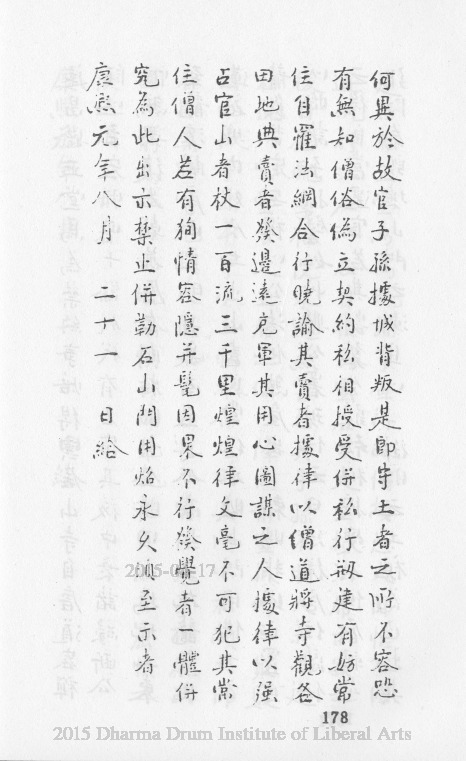 何異於故官子孫據城背叛是即守土者之所不容恐
有無知僧俗偽立契約私相授受併私行剏建有妨常
住自罹法網合行曉諭其賣者據律以僧道將寺觀各
田地典賣者發邊遠充軍其用心圖謀之人據律以强
占官山者杖一百流三千里煌煌律文毫不可犯其常
住僧人若有狥情容隱并髦因果不行發覺者一體併
究為此出示禁止併勒石山門用炤永久須至示者
康熙元年八月 二十一 日給
178
2015 Dharma Drum Institute of Liberal Arts